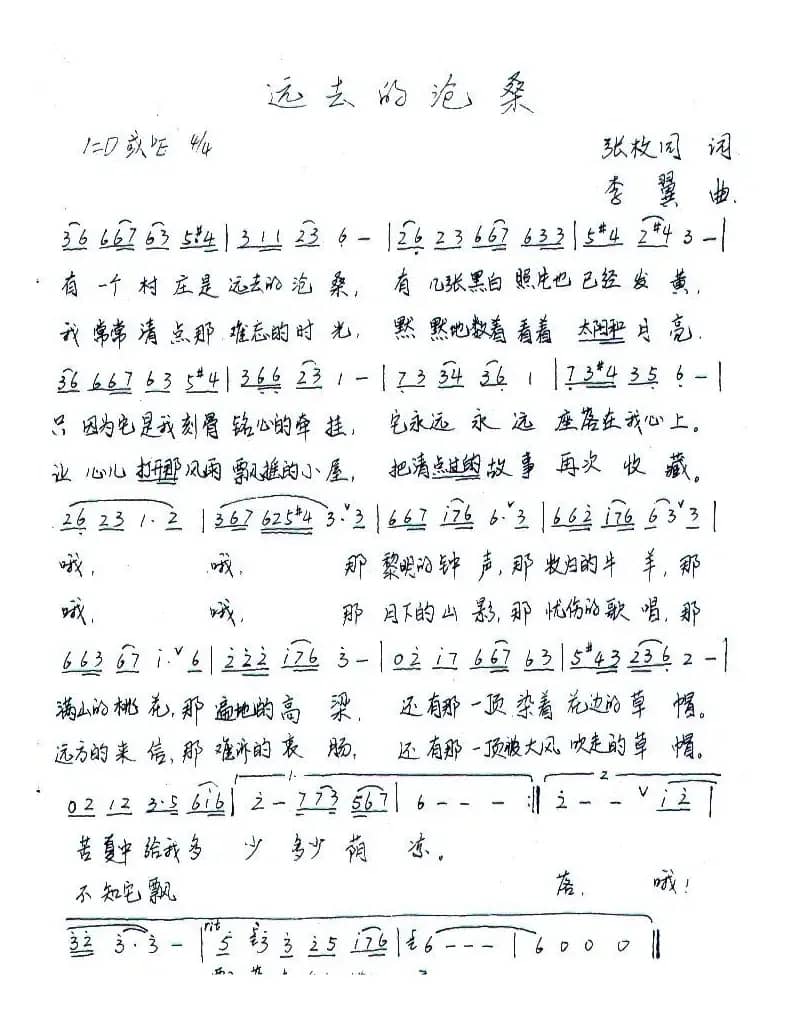 远去的沧桑
1=D 或♭E 4/4
张枚同 词
李翼 曲.
36 667 63 5#4 | 311 23 6 - | 26 23 667 633 | 5#4 2#4 3 - |
有一个村庄是远去的沧桑, 有几张黑白照片也已经发黄,
我常常清点那难忘的时光, 默默地数着看着太阳和月亮.
36 667 63 5#4 | 366 23 1 - | 73 34 36 1 | 73#4 35 6 - |
只因为它是我刻骨铭心的牵挂, 它永远永远座落在我心上。
让心儿打开那风雨飘摇的小屋, 把清点过的故事再次收藏。
26 23 1·2 | 367 625#4 3·∨3 | 667 i76 6·∨3 | 662 i76 63∨3 |
哦, 哦, 那黎明的钟声, 那牧归的牛羊, 那
哦, 哦, 那月下的山影, 那忧伤的歌唱, 那
663 67 i·∨6 | 222 i76 3 - | 02 i7 667 63 | 5#43 236 2 - |
满山的桃花, 那遍地的高粱, 还有那一顶染着花边的草帽。
远方的来信, 那难沵的衷肠, 还有那一顶被大风吹走的草帽。
1. 2.
02 12 3·5 6i6 | 2 - 773 567 | 6 - - - :‖ 2 - - ∨ i2 |
苦夏中给我多少多少荫凉。
不知它飘 落, 哦!
rit
32 3·3 - | 5 3 3 25 i76 | 6 - - - | 6 0 0 0 ‖